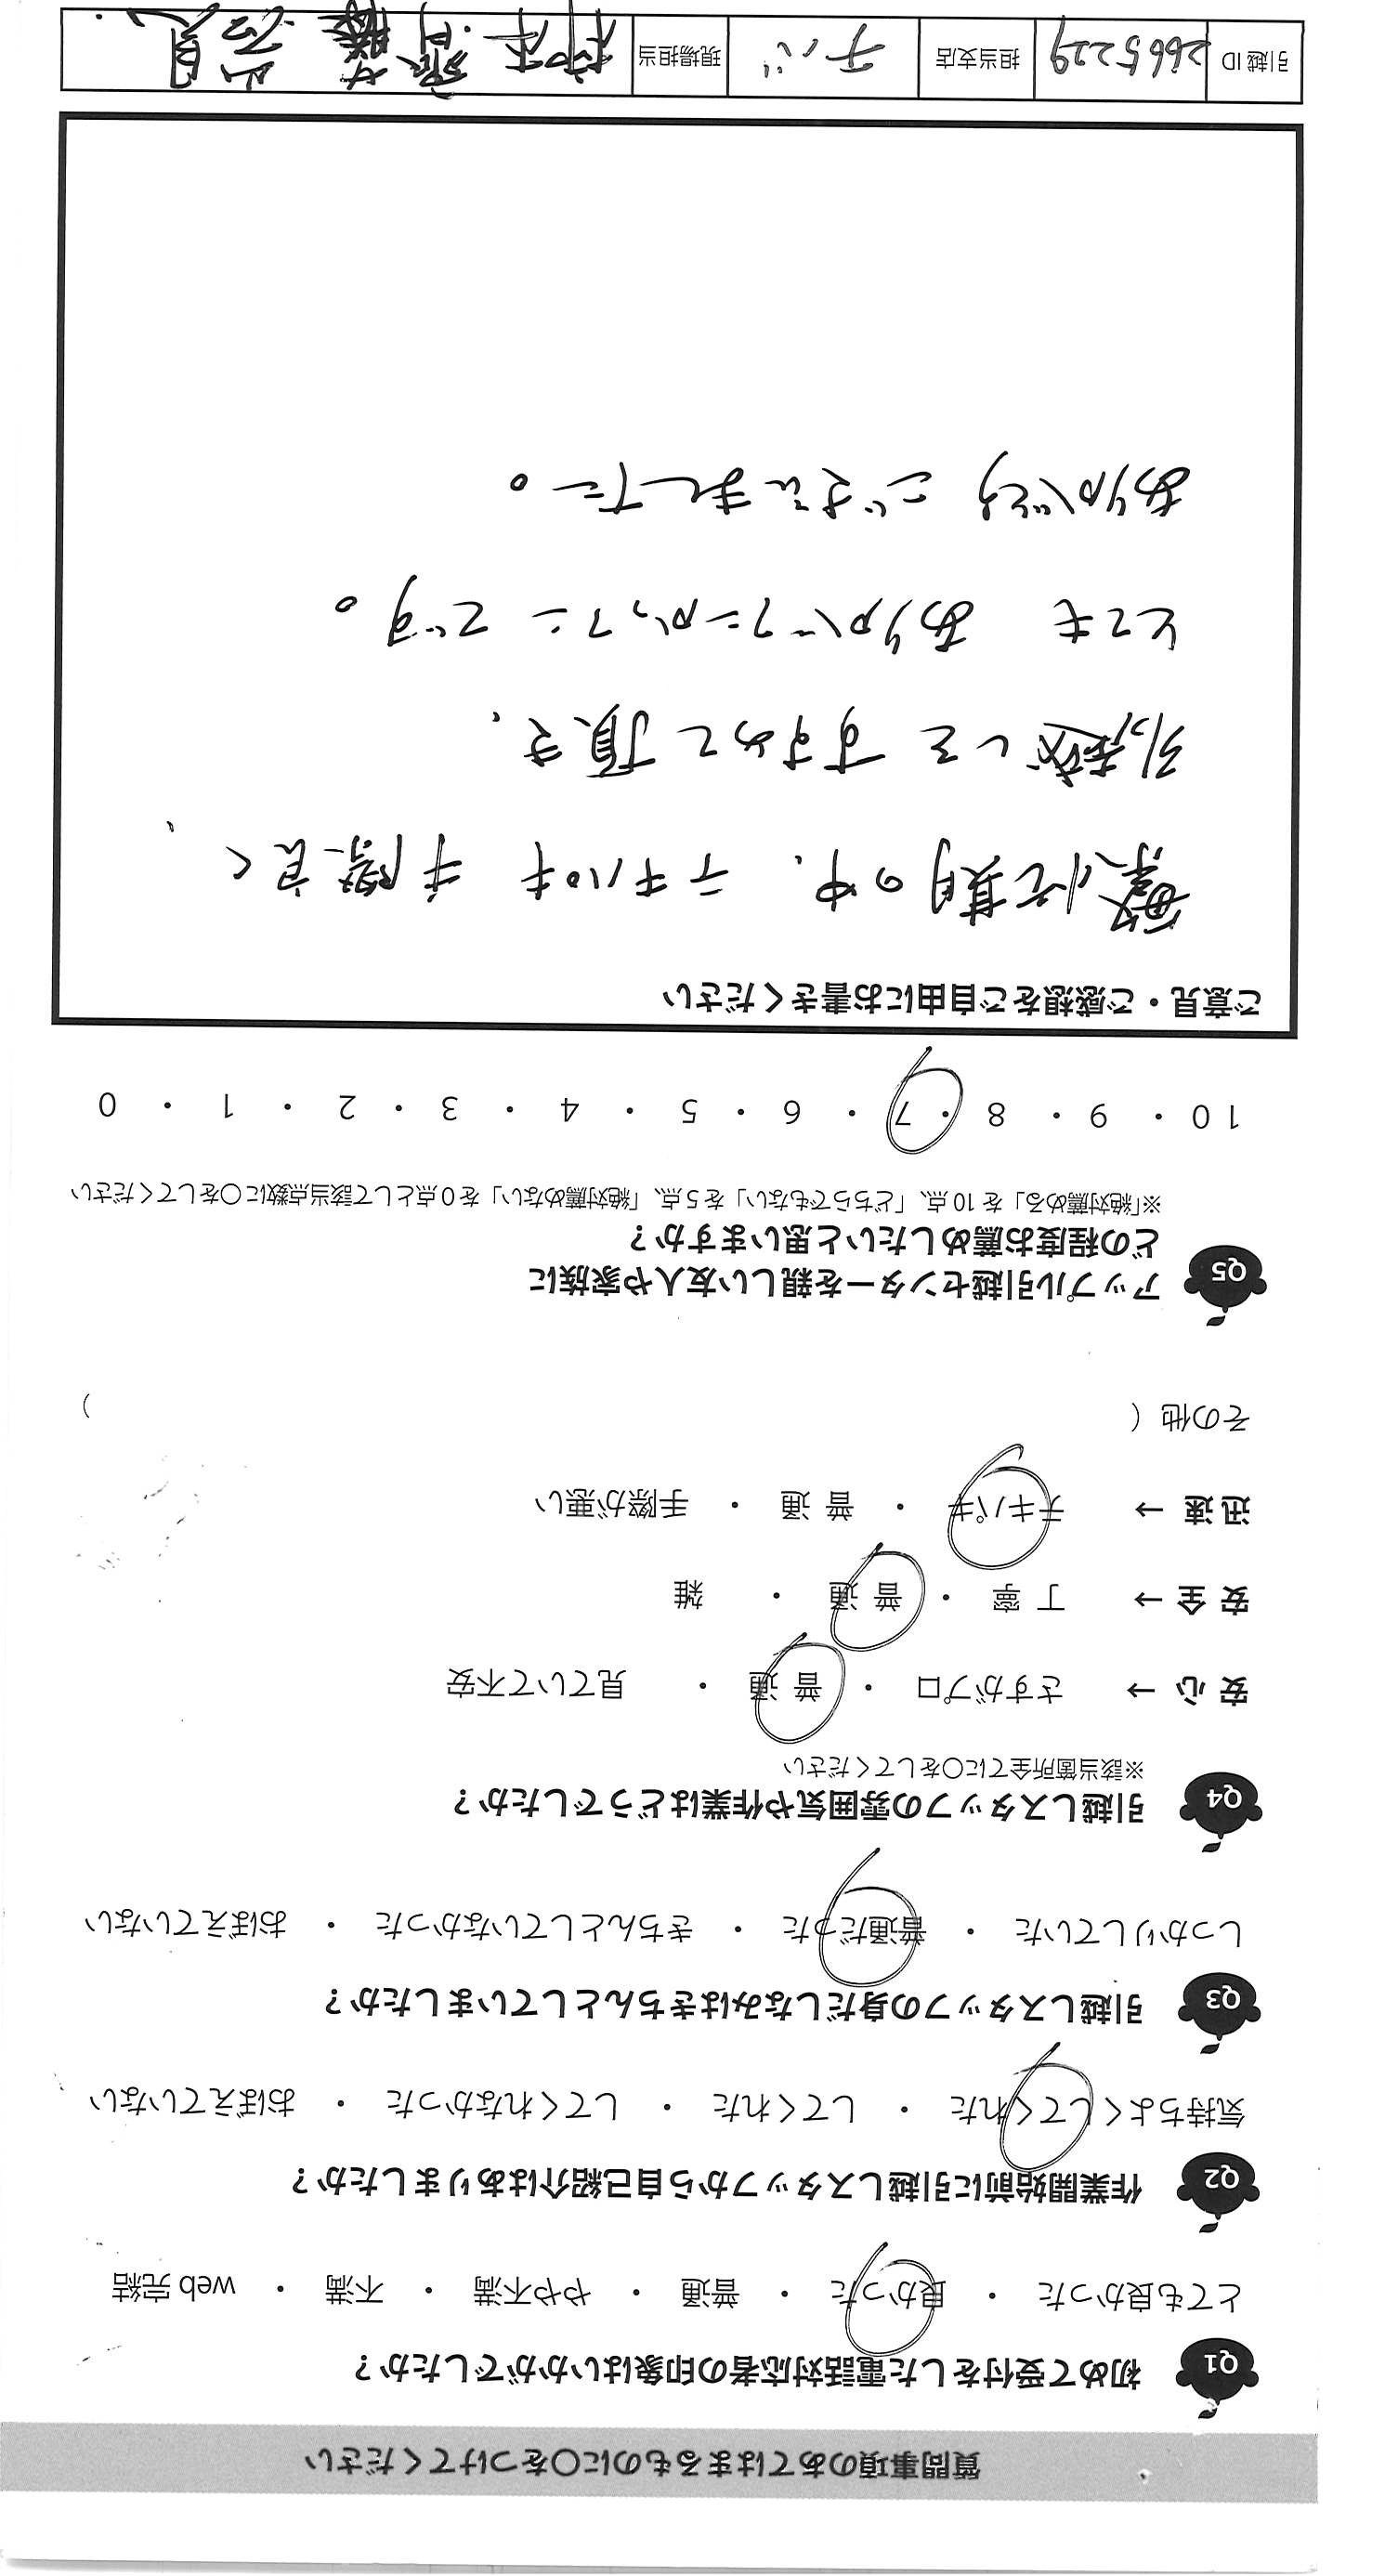 質問事項のあてはまるものに○をつけてください
Q1 初めて受付をした電話対応者の印象はいかがでしたか？
とても良かった ・ 良かった ・ 普通 ・ やや不満 ・ 不満 ・ web 完結
Q2 作業開始前に引越しスタッフから自己紹介はありましたか？
気持ちよくしてくれた ・ してくれた ・ してくれなかった ・ おぼえていない
Q3 引越しスタッフの身だしなみはきちんとしていましたか？
しっかりしていた ・ 普通だった ・ きちんとしていなかった ・ おぼえていない
Q4 引越しスタッフの雰囲気や作業はどうでしたか？
※該当箇所全てに○をしてください
安 心 → さすがプロ ・ 普 通 ・ 見ていて不安
安 全 → 丁 寧 ・ 普 通 ・ 雑
迅 速 → テキパキ ・ 普 通 ・ 手際が悪い
その他（ ）
Q5 アップル引越センターを親しい友人や家族に
どの程度お薦めしたいと思いますか？
※「絶対薦める」を 10 点、「どちらでもない」を 5 点、「絶対薦めない」を 0 点として該当点数に○をしてください
10 ・ 9 ・ 8 ・ 7 ・ 6 ・ 5 ・ 4 ・ 3 ・ 2 ・ 1 ・ 0
ご意見・ご感想をご自由にお書きください
繁忙期の中、テキパキ 手際良く、
引越しを すすめて頂き、
とても ありがたかったです。
ありがとうございました。
引越 ID 2665229 担当支店 チバ 現場担当